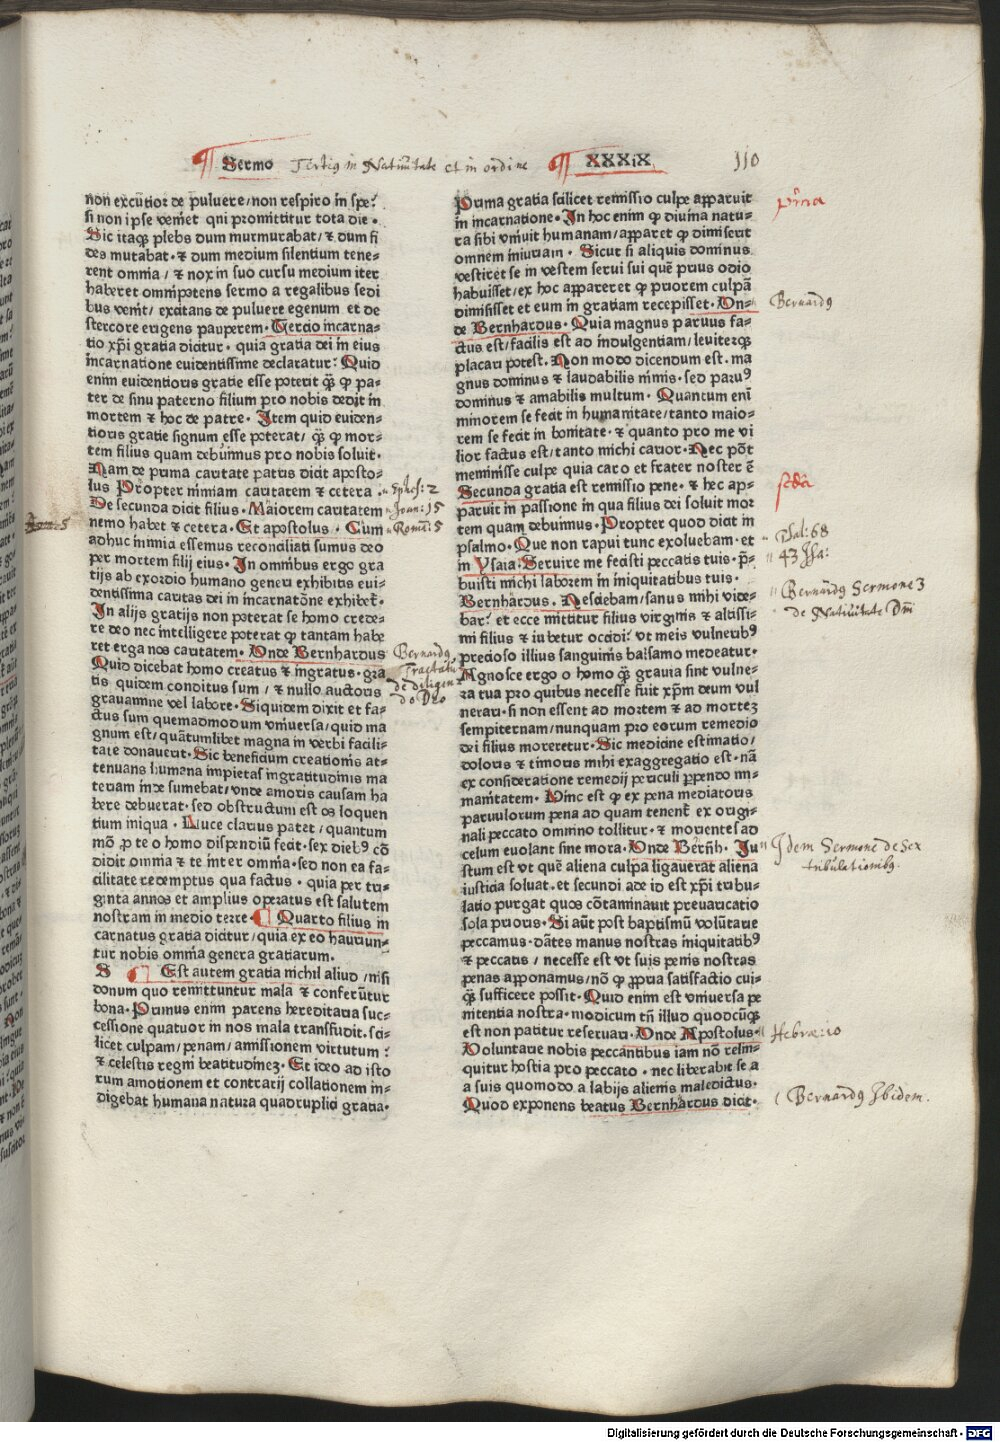 Sermo Tertius in Natiuitate et in ordine XXXIX 110
non excutior de puluere/non respiro in spe?
si non ipse venıet qui promittitur tota die.
Sic itaqꝫ plebs dum murmurabat/⁊ dum fi
des mutabat. ⁊ dum medium silentium tene-
rent omnia/ ⁊ nox in suo cursu medium iter
haberet omnipotens sermo a regalibus sedi
bus venit/ excitans de puluere egenum et de
stercore erigens pauperem. Tercio incarna-
tio xp̄i gratia dicitur. quia gratia dei in eius
incarnatione euidentissime declaratur: Quid
enim euidentioris gratie esse poterit qȝ̄ ꝙ pa-
ter de sinu paterno filium pro nobis dedit in
mortem ⁊ hoc de patre. Item quid euiden-
tioris gratie signum esse poterat/ qȝ̄ ꝙ mor-
tem filius quam debuimus pro nobis soluit.
Nam de prima caritate patris dicit aposto-
lus Propter nimiam caritatem ⁊ cetera
De secunda dicit filius. Maiorem caritatem
nemo habet ⁊ cetera. Et apostolus. Cum
adhuc inimici essemus reconciliati sumus deo
per mortem filij eius. In omnibus ergo gra
tijs ab exordio humano generi exhibitis eui-
dentissima caritas dei in incarnatōne exhibet̄.
In alijs gratijs non poterat se homo crede-
re deo nec intelligere poterat ꝙ tantam habe
ret erga nos caritatem. Onde Bernhardus
Quid dicebat homo creatus ⁊ ingratus. gra
tis quidem conditus sum/ ⁊ nullo auctoris
grauamine vel labore. Siquidem dixit et fa-
ctus sum quemadmodum vniuersa/ quid ma
gnum est/ quātumlibet magna in verbi facili-
tate donauerit. Sic beneficium creationis at-
tenuans humana impietas ingratitudinis ma
teriam inde sumebat/ vnde amoris causam ha
bere debuerat. sed obstructum est os loquen
tium iniqua. Luce clarius patet/ quantum
mō pro te o homo dispendiū fecit. sex dieb⁹ cō
didit omnia ⁊ te inter omnia. sed non ea fa-
cilitate redemptus qua factus. quia per tri-
ginta annos et amplius operatus est salutem
nostram in medio terre. Quarto filius in
carnatus gratia dicitur/ quia ex eo hauriun-
tur nobis omnia genera gratiarum.
S Est autem gratia nichil aliud/ nisi
donum quo remittuntur mala ⁊ conferūtur
bona. Primus enim parens hereditaria suc-
cessione quatuor in nos mala transfudit. sci-
licet culpam/ penam/ amissionem virtutum:
⁊ celestis regni beatitudinem. Et ideo ad isto
rum amotionem et contrarij collationem in-
digebat humana natura quadruplici gratia.
Ephes: 2
Joan: 15
Roma: 5
Bernardꝰ
Tractatu
de diligen
do Deo
Prima gratia scilicet remissio culpe apparuit
in incarnatione. In hoc enim ꝙ diuina natu-
ra sibi vniuit humanam/ apparet ꝙ dimiserit
omnem iniuriam. Sicut si aliquis dominus
vestiret se in vestem serui sui quē prius odio
habuisset/ ex hoc appareret ꝙ priorem culpā
dimisisset et eum in gratiam recepisset. On-
de Bernhardus. Quia magnus paruus fa-
ctus est/ facilis est ad indulgentiam/ leuiterqꝫ
placari potest. Non modo dicendum est. ma
gnus dominus ⁊ laudabilis nimis. sed paru⁹
dominus ⁊ amabilis multum. Quantum eni
minorem se fecit in humanitate/ tanto maio-
rem se fecit in bonitate. ⁊ quanto pro me vi
lior factus est/ tanto michi carior. Nec pōt
meminisse culpe quia caro et frater noster ē
Secunda gratia est remissio pene. ⁊ hec ap-
paruit in passione in qua filius dei soluit mor
tem quam debuimus. Propter quod dicit in
psalmo. Que non rapui tunc exoluebam. et
in Ysaia. Seruire me fecisti peccatis tuis. p̄-
buisti michi laborem in iniquitatibus tuis.
Bernhardus. Nesciebam/ sanus mihi vide-
bar: et ecce mittitur filius virginis ⁊ altissi-
mi filius ⁊ iubetur occidi: vt meis vulnerib⁹
precioso illius sanguinis balsamo medeatur.
Agnosce ergo o homo qȝ̄ grauia sint vulne-
ra tua pro quibus necesse fuit xp̄m deum vul
nerari. si non essent ad mortem ⁊ ad mortem
sempiternam/ nunquam pro eorum remedio
dei filius moreretur. Sic medicine estimatio/
doloris ⁊ timoris mihi exaggeratio est. nā
ex consideratione remedij periculi ꝑpendo im-
manitatem. Hinc est ꝙ ex pena mediatoris
paruulorum pena ad quam tenent̄ ex origi-
nali peccato omnino tollitur. ⁊ morientes ad
celum euolant sine mora. Onde Bern̄h. Iu
stum est vt quē aliena culpa ligauerat aliena
iusticia soluat. et secundi ade id est xp̄i tribu-
latio purgat quos cōtaminauit preuaricatio
sola prioris. Si aūt post baptismū volūtarie
peccamus. dātes manus nostras iniquitatib⁹
⁊ peccatis/ necesse est vt suis penis nostras
penas apponamus/ nō ꝙ ꝓpria satisfactio cui-
qȝ̄ sufficere possit. Quid enim est vniuersa pe
nitentia nostra. modicum tn̄ illud quodcūqꝫ
est non patitur reseruari. Onde Apostolus.
Voluntarie nobis peccantibus iam nō relin-
quitur hostia pro peccato. nec liberabit se a
a suis quomodo a labijs alienis maledictus.
Quod exponens beatus Bernhardus dicit.
pri̅a
Bernardꝰ
scd̄a
Psal: 68
43 Isa:
Bernardꝰ Sermone 3
de Natiuitate Dn̄i
Idem Sermone de sex
tribulationibꝫ.
Hebreo: 10
Bernardꝰ Ibidem.
Digitalisierung gefördert durch die Deutsche Forschungsgemeinschaft - DFG